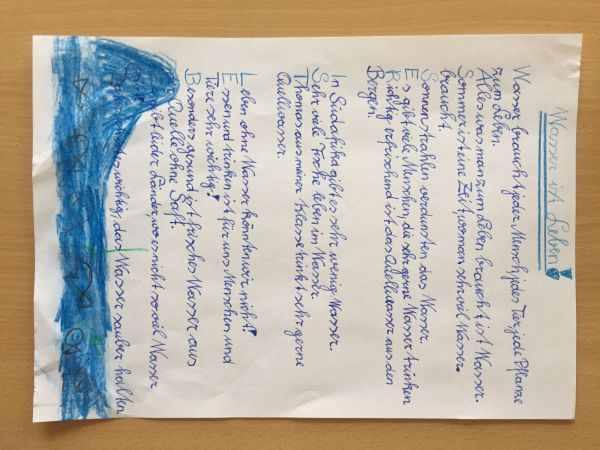 Wasser ist Leben!
Wasser braucht jeder Mensch, jedes Tier, jede Pflanze
zum Leben.
Alles was man zum Leben braucht ist Wasser.
Sommer ist eine Zeit, wo man sehr viel Wasser
braucht.
Sonnenstrahlen verdunsten das Wasser
Es gibt viele Menschen, die sehr gerne Wasser trinken
Richtig erfrischend ist das Quellwasser aus den
Bergen!
In Südafrika gibt es sehr wenig Wasser.
Sehr viele Fische leben im Wasser.
Thomas aus meiner Klasse trinkt sehr gerne
Quellwasser.
Leben ohne Wasser könnten wir nicht!
Essen und trinken ist für uns Menschen und
Tiere sehr wichtig!
Besonders gesund ist frisches Wasser aus
Quelle ohne Saft.
gibt leider Länder, wo es nicht so viel Wasser
wichtig, das Wasser sauber halten